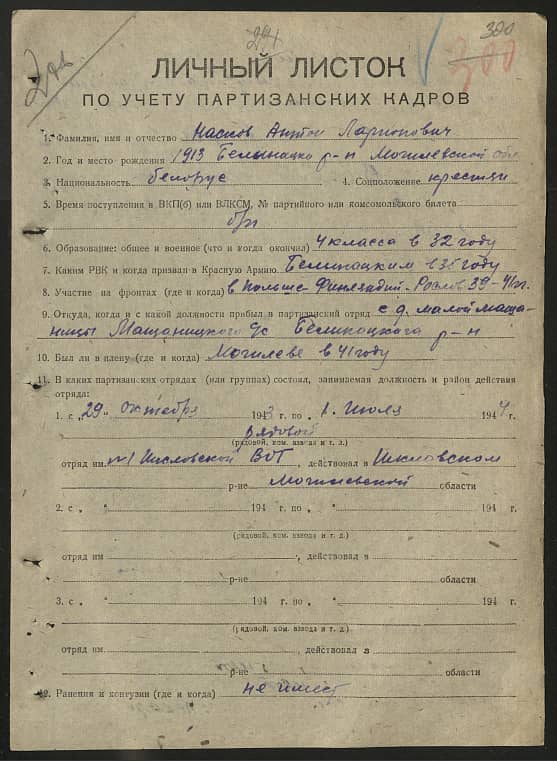 300
300
ЛИЧНЫЙ ЛИСТОК
ПО УЧЕТУ ПАРТИЗАНСКИХ КАДРОВ
1. Фамилия, имя и отчество Насков Антон Ларионович
2. Год и место рождения 1913 Белыницко р-н Могилевской обл
3. Национальность белорус 4. Соцположение крестян
5. Время поступления в ВКП(б) или ВЛКСМ, № партийного или комсомольского билета
б/п
6. Образование: общее и военное (что и когда окончил) 4 класса в 32 году
7. Каким РВК и когда призван в Красную Армию Белиницким в 35 году
8. Участие на фронтах (где и когда) в Польше 39-41 гг.
9. Откуда, когда и с какой должности прибыл в партизанский отряд с д. малой маща-
ницы Мащаницкого с/с Белиницкого р-н
10. Был ли в плену (где и когда) Могилеве в 41 году
11. В каких партизанских отрядах (или группах) состоял, занимаемая должность и район действия
отряда:
1. с „29„ октября 1943 г. по „1. Июля 1944 г.
рядовой
(рядовой, ком. взвода и т. д.)
отряд им. №1 Шкловской ВОГ, действовал в Шкловском
р-не Могилевской области
2. с „ „ 194 г. по „ „ 194 г.
(рядовой, ком. взвода и т. д.)
отряд им , действовал в
р-не области
3. с „ „ 194 г. по „ „ 194 г.
(рядовой, ком. взвода и т. д.)
отряд им , действовал в
р-не области
12. Ранения и контузии (где и когда) не имеет